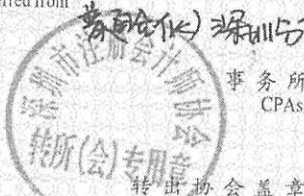 erred from
深圳
事务所
CPAs
深圳市注册会计师协会
转所(会)专用章
转出协会盖章